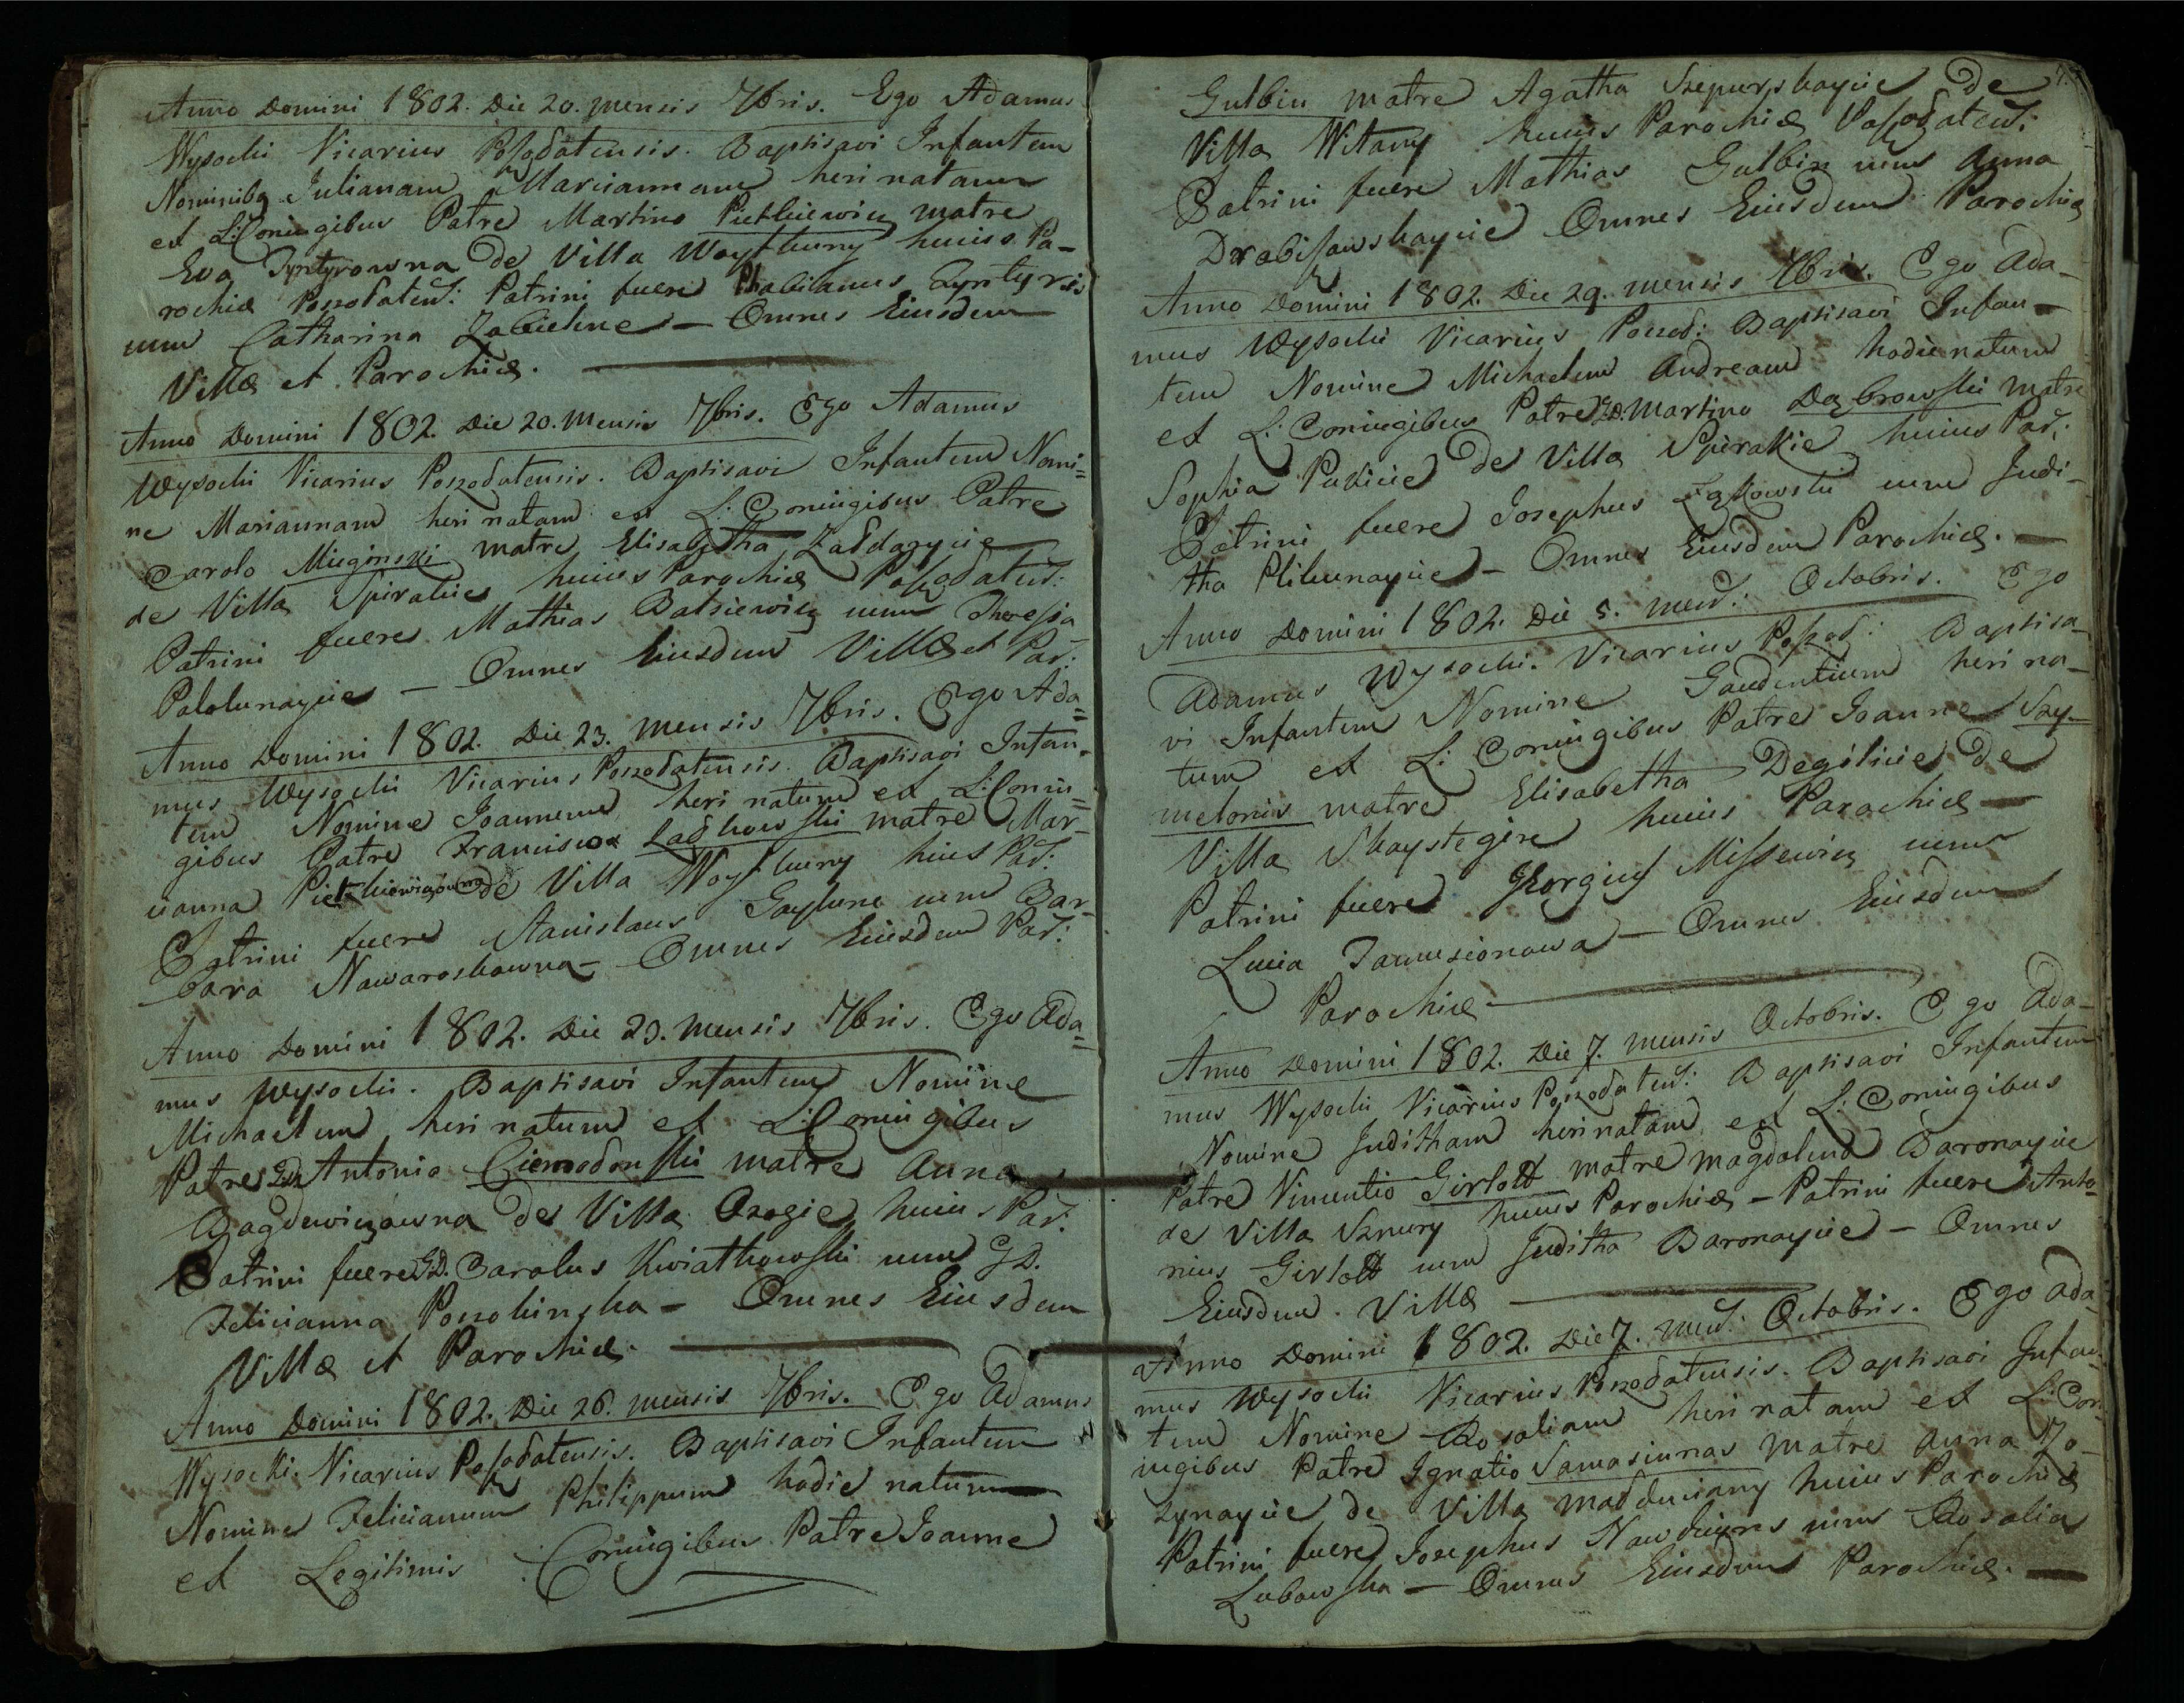 Anno Domini 1802. Die 20. mensis 7bris. Ego Adamus
Wysocki Vicarius Poszodatensis. Baptisavi Infantem
Nominibq Julianam Mariannam heri natam
ex L: Coniugibus Patre Martino Pietkiewicz matre
Eva Dyntyrowna de Villa Woytkuny huius Pa-
rochiæ Poszodaten: Patrini fuere Dyntyrsis
unu Catharina Zabielune - Omnes Eiusdem
Villæ et Parochiæ.
Anno Domini 1802. Die 20. Mensis 7bris. Ego Adamus
Wysocki Vicarius Poszodatensis. Baptisavi Infantem Nomi=
ne Mariannam heri natam ex L: Coniugibus Patre
Carolo Miiginski matre Elisabetha
de Villa Spirakie huius Parochiæ Poszodaten:
Patrini fuere Mathias Batsiewicz unu Theressa
Palolunaycie - Omnes Eiusdem Villæ et Par:
Anno Domini 1802. Die 23. mensis 7bris. Ego Ada=
mus Wysocki Vicarius Poszodatensis. Baptisavi Infan-
tem Nomine Joannem heri natum ex L: Coniu=
gibus Patre Francisco Ladkowski matre Mar-
cianna Pietkiewiczowna de Villa Woytkuny huius Par:
Patrini fuere Stanislaus Gaylune unu Bar-
bara Nawaroskowna - Omnes Eiusdem Par:
Anno Domini 1802. Die 23. mensis 7bris. Ego Ada=
mus Wysocki. Baptisavi Infantem Nomine
Michaelem heri natum ex L: Coniugibus
Patre GD. Antonio Ciemodonski matre Anna
Bagdewiczówna de Villa Ozogie huius Par:
Patrini fuere GD. Carolus Kwiatkowski unu GD.
Felicianna Poszokinska - Omnes Eiusdem
Villæ et Parochiæ.
Anno Domini 1802. Die 26. mensis 7bris. Ego Adamus
Wysocki. Vicarius Poszodatensis. Baptisavi Infantem
Nomine Felicianum Philippum hodie natum
ex Legitimis Coniugibus Patre Joanne
Gulbin matre Agatha Szepurskaycie de
Villa Witany huius Parochiæ Poszodaten:
Patrini fuere Mathias Gulbin unu Anna
Drabiszewskaycie Omnes Eiusdem Parochiæ
Anno Domini 1802. Die 29. mensis 7bris. Ego Ada-
mus Wysocki Vicarius Poszod: Baptisavi Infan-
tem Nomine Michaelem Andream hodie natum
ex L: Coniugibus Patre GD. Martino Dąbrowski matre
Sophia de Villa Spirakie huius Par:
Patrini fuere Josephus Żąkowski unu Judi-
tha Plikunaycie - Omnes Eiusdem Parochiæ. -
Anno Domini 1802. Die 5. men: Octobris. Ego
Adamus Wysocki. Vicarius Poszod: Baptisa-
vi Infantem Nomine Gaudentium heri na-
tum ex L: Coniugibus Patre Joanne Szy-
melonis matre Elisabetha Dególicie de
Villa Skaystegire huius Parochiæ -
Patrini fuere Georgius Missewicz unu
Lucia Janusionowa - Omnes Eiusdem
Parochiæ -
Anno Domini 1802. Die 7. mensis Octobris. Ego Ada-
mus Wysocki Vicarius Poszodaten: Baptisavi Infantem
Nomine Juditham heri natam ex L: Coniugibus
Patre Vincentio Girtott matre Magdalena Baronaycie
de Villa Sznury huius Parochiæ - Patrini fuere Anto-
nius Girtott unu Juditha Baronaycie - Omnes
Eiusdem. Villæ
Anno Domini 1802. Die 7. men: Octobris. Ego Ada-
mus Wysocki Vicarius Poszodatensis. Baptisavi Infan-
tem Nomine Rosaliam heri natam ex L: Con-
iugibus Patre Ignatio Samasiunas matre Anna Jo-
zynaycie de Villa Madduciany huius Parochiæ
Patrini fuere Josephus unu Rosalia
Lubowska - Omnes Eiusdem Parochiæ. -